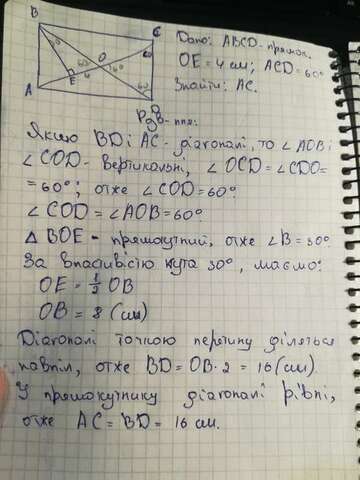 B C
Дано: ABCD - прямок.
OE = 4 см; ACD = 60°
Знайти: AC.
O 60 60 60 E 4
A D
Розв-ння:
Якщо BD і AC - діагоналі, то ∠AOB і
∠COD - вертикальні, ∠OCD = ∠CDO =
= 60°; отже ∠COD = 60°
∠COD = ∠AOB = 60°
△ BOE - прямокутний, отже ∠B = 30°
За властивістю кута 30°, маємо:
OE = 1/2 OB
OB = 8 (см)
Діагоналі точкою перетину діляться
навпіл, отже BD = OB · 2 = 16 (см).
У прямокутнику діагоналі рівні,
отже AC = BD = 16 см.